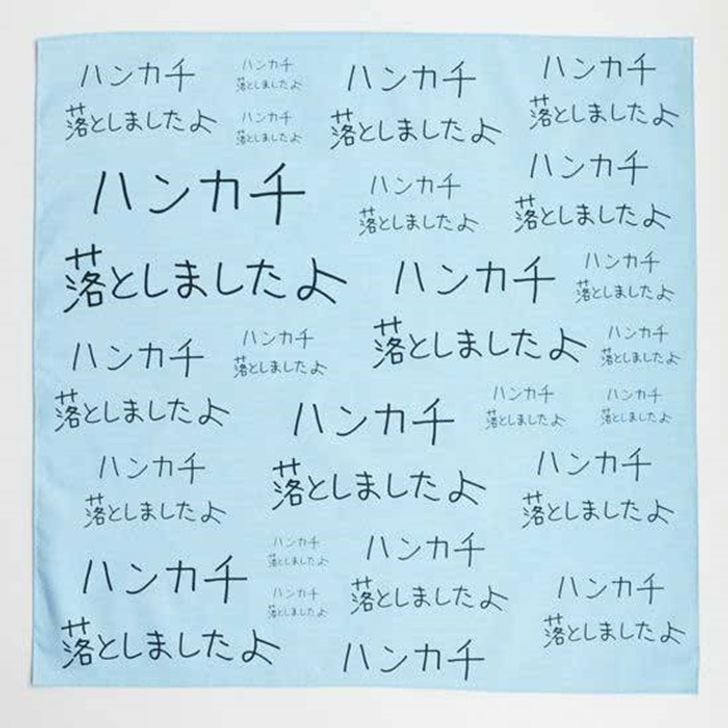 ハンカチ
落としましたよ
ハンカチ
落としましたよ
ハンカチ
落としましたよ
ハンカチ
落としましたよ
ハンカチ
落としましたよ
ハンカチ
落としましたよ
ハンカチ
落としましたよ
ハンカチ
落としましたよ
ハンカチ
落としましたよ
ハンカチ
落としましたよ
ハンカチ
落としましたよ
ハンカチ
落としましたよ
ハンカチ
落としましたよ
ハンカチ
落としましたよ
ハンカチ
落としましたよ
ハンカチ
落としましたよ
ハンカチ
落としましたよ
ハンカチ
落としましたよ
ハンカチ
落としましたよ
ハンカチ
落としましたよ
ハンカチ
落としましたよ
ハンカチ
落としましたよ
ハンカチ
落としましたよ
ハンカチ
落としましたよ
ハンカチ